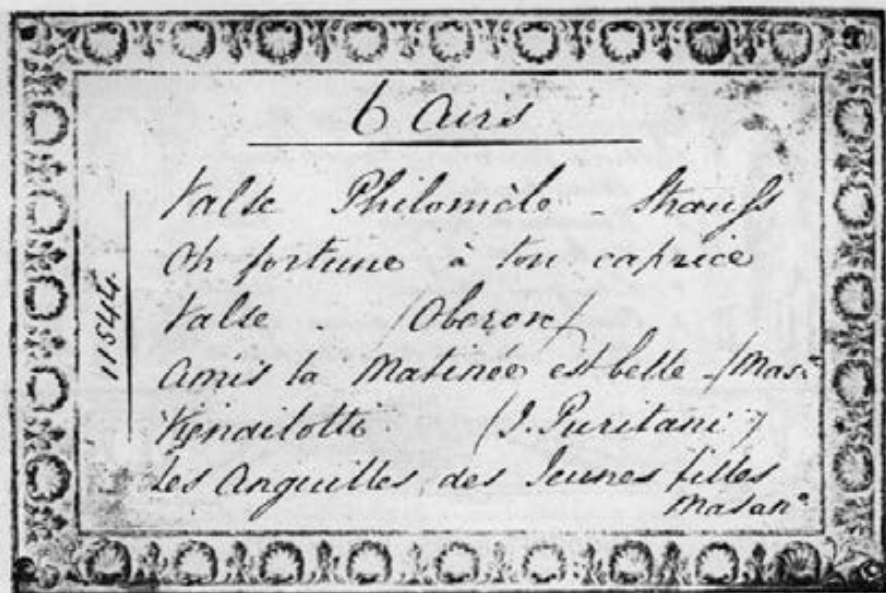 6 Airs
Valse Philomèle - Strauss
Oh fortune à ton caprice
Valse - /Oberon/
Amis la Matinée est belle - /Mas:
(I. Puritani)
Les Anguilles, des Jeunes filles
Masan°
11544.